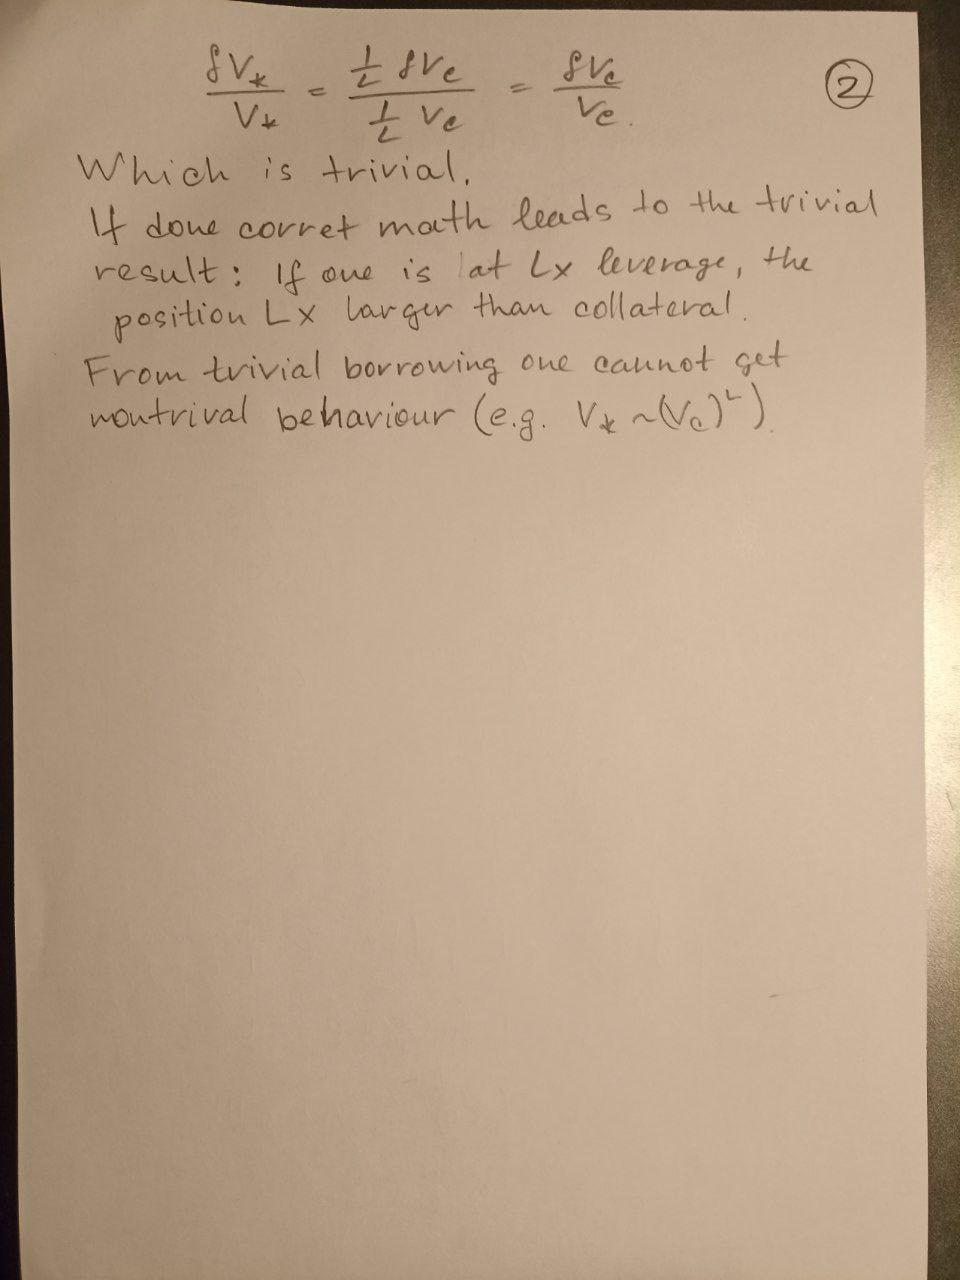 δV* / V* = 1/L δVc / 1/L Vc = δVc / Vc.
②
Which is trivial.
If done corret math leads to the trivial
result: If one is at Lx leverage, the
position Lx larger than collateral.
From trivial borrowing one cannot get
nontrival behaviour (e.g. V* ~ (Vc)^L).